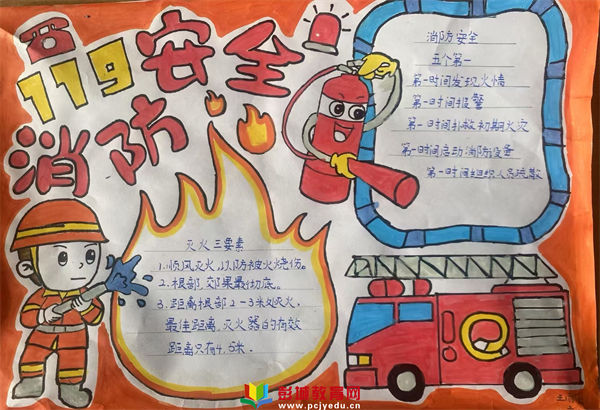 119安全
消防
消防安全
五个第一
第一时间发现火情
第一时间报警
第一时间扑救初期火灾
第一时间启动消防设备
第一时间组织人员疏散
灭火三要素
1.顺风灭火,以防被火烧伤。
2.根部,效果最彻底。
3.距离根部2-3米处灭火,
最佳距离,灭火器的有效
距离只有4.5米.
彭城教育网
www.pcjyedu.cn